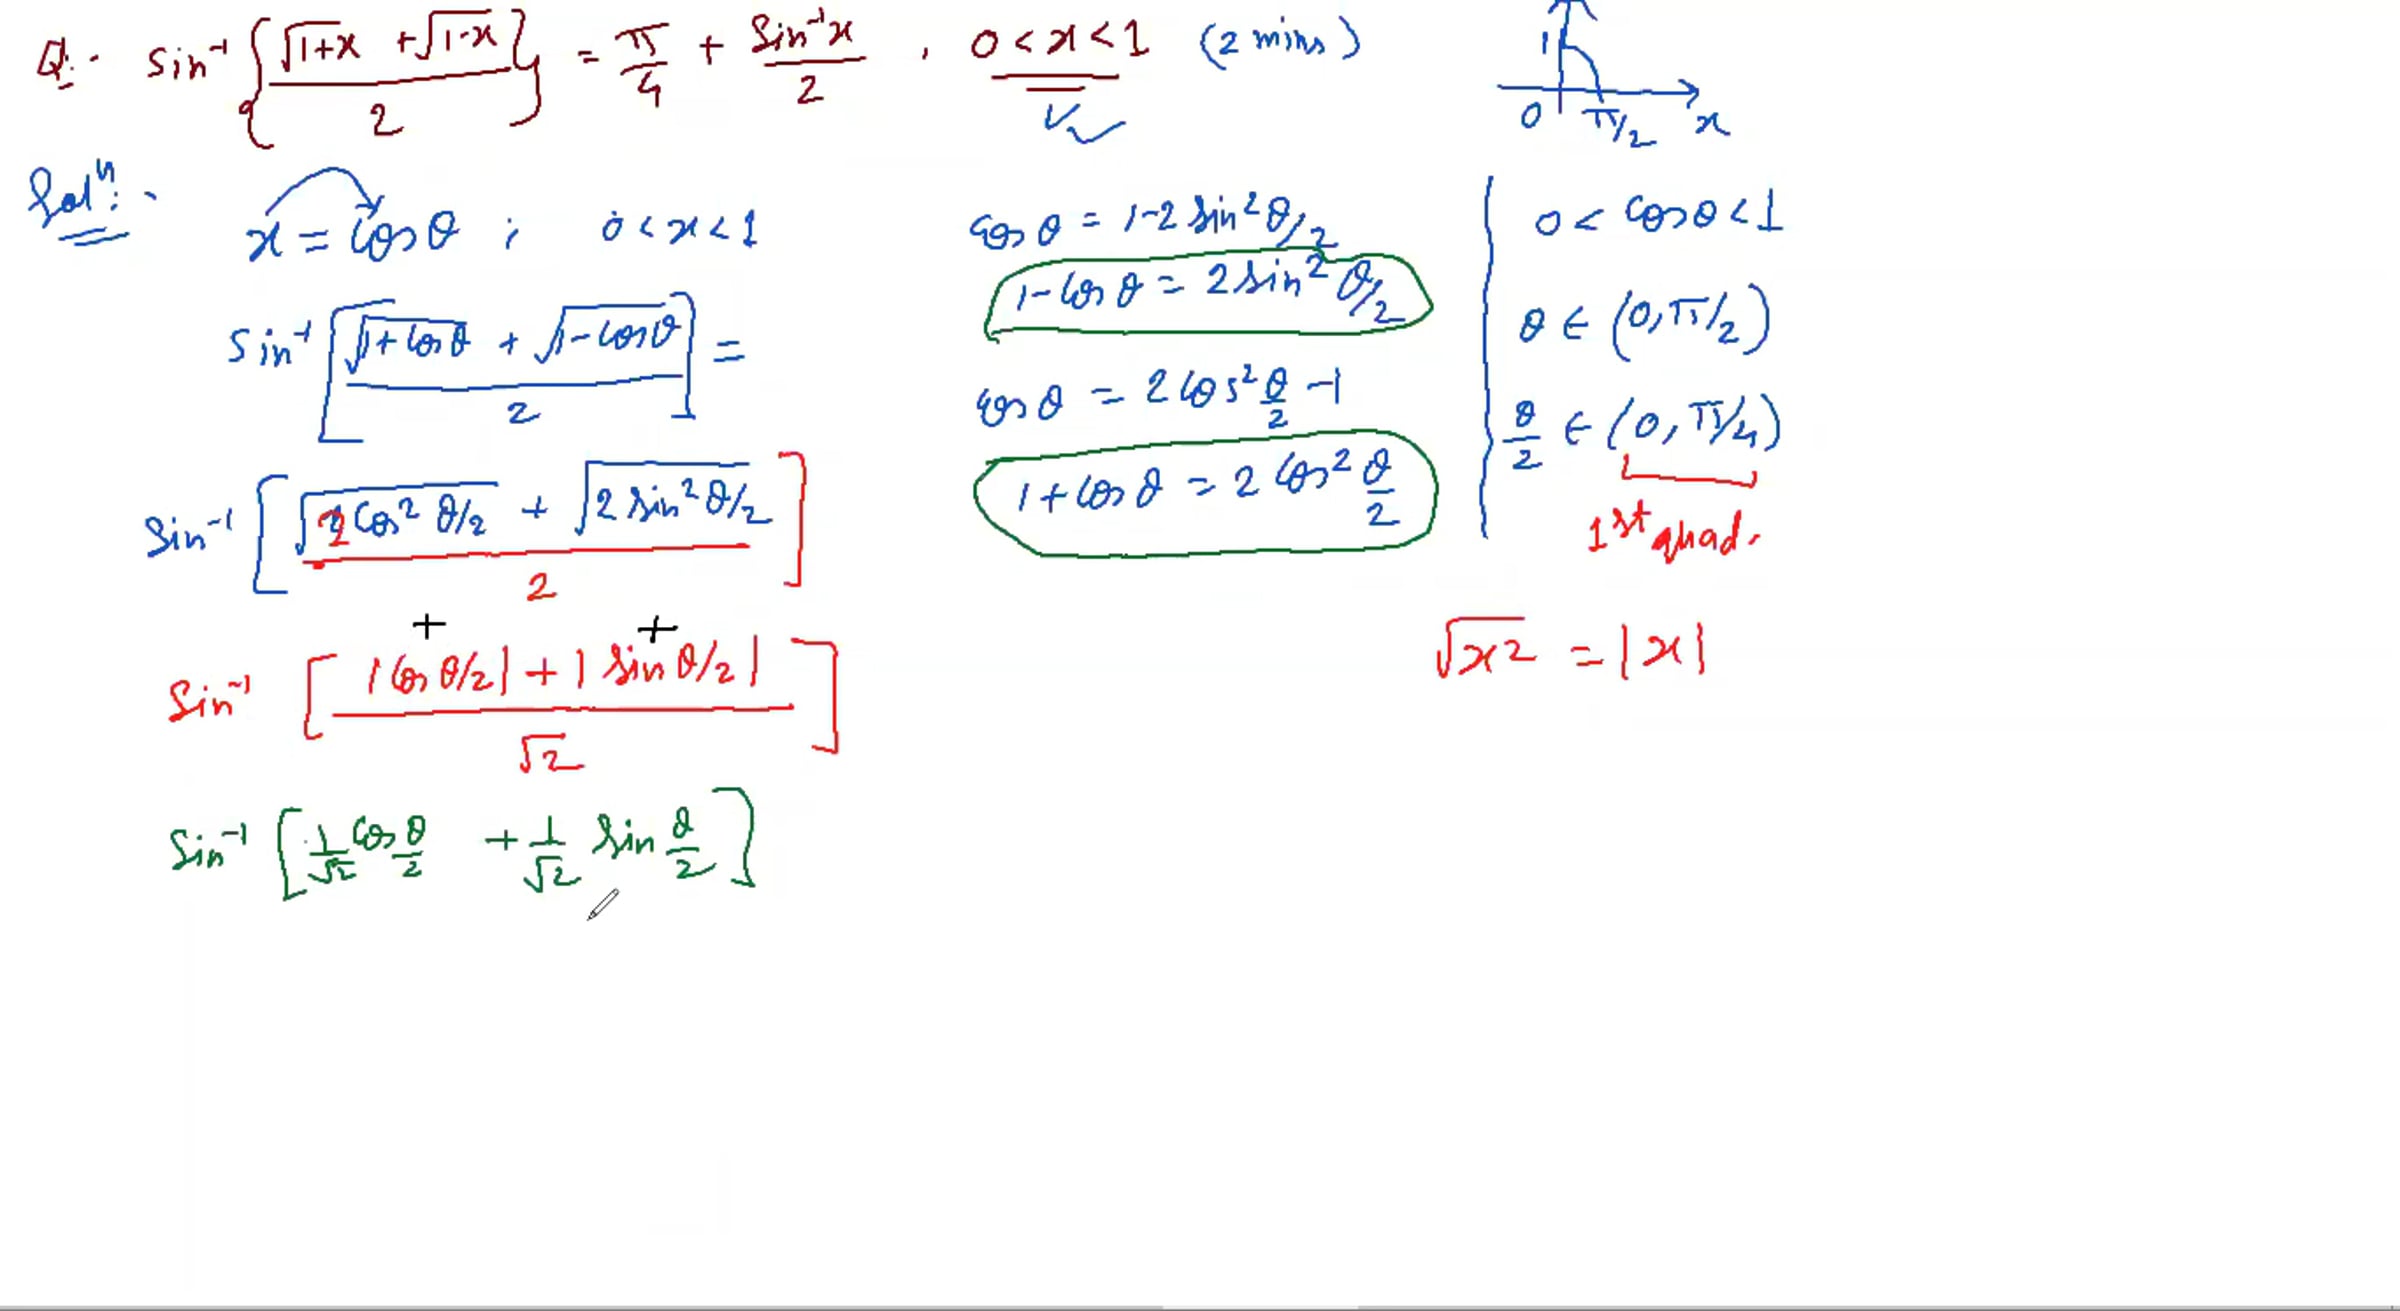 Q:- sin⁻¹ { (√1+x + √1-x) / 2 } = π/4 + sin⁻¹x / 2 , 0 < x < 1 (2 mins)
1
0 π/2 x
Solⁿ:-
x = cosθ ; 0 < x < 1
sin⁻¹ [ (√1+cosθ + √1-cosθ) / 2 ] =
sin⁻¹ [ (√2cos² θ/2 + √2 sin² θ/2) / 2 ]
+ +
sin⁻¹ [ (|cos θ/2| + | sin θ/2|) / √2 ]
sin⁻¹ [ 1/√2 cos θ/2 + 1/√2 sin θ/2 ]
cosθ = 1-2 sin² θ/2
1-cosθ = 2 sin² θ/2
cosθ = 2cos² θ/2 -1
1+cosθ = 2 cos² θ/2
0 < cosθ < 1
θ ∈ (0, π/2)
θ/2 ∈ (0, π/4)
1st quad.
√x² = |x|